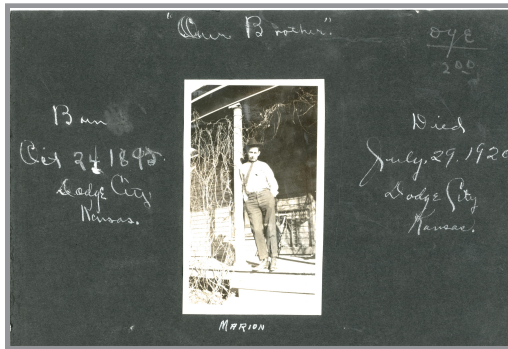 "Our Brother".
DYE
200
Born
Oct 24 1895.
Dodge City,
Kansas.
Died
July. 29. 1920
Dodge City
Kansas.
MARION